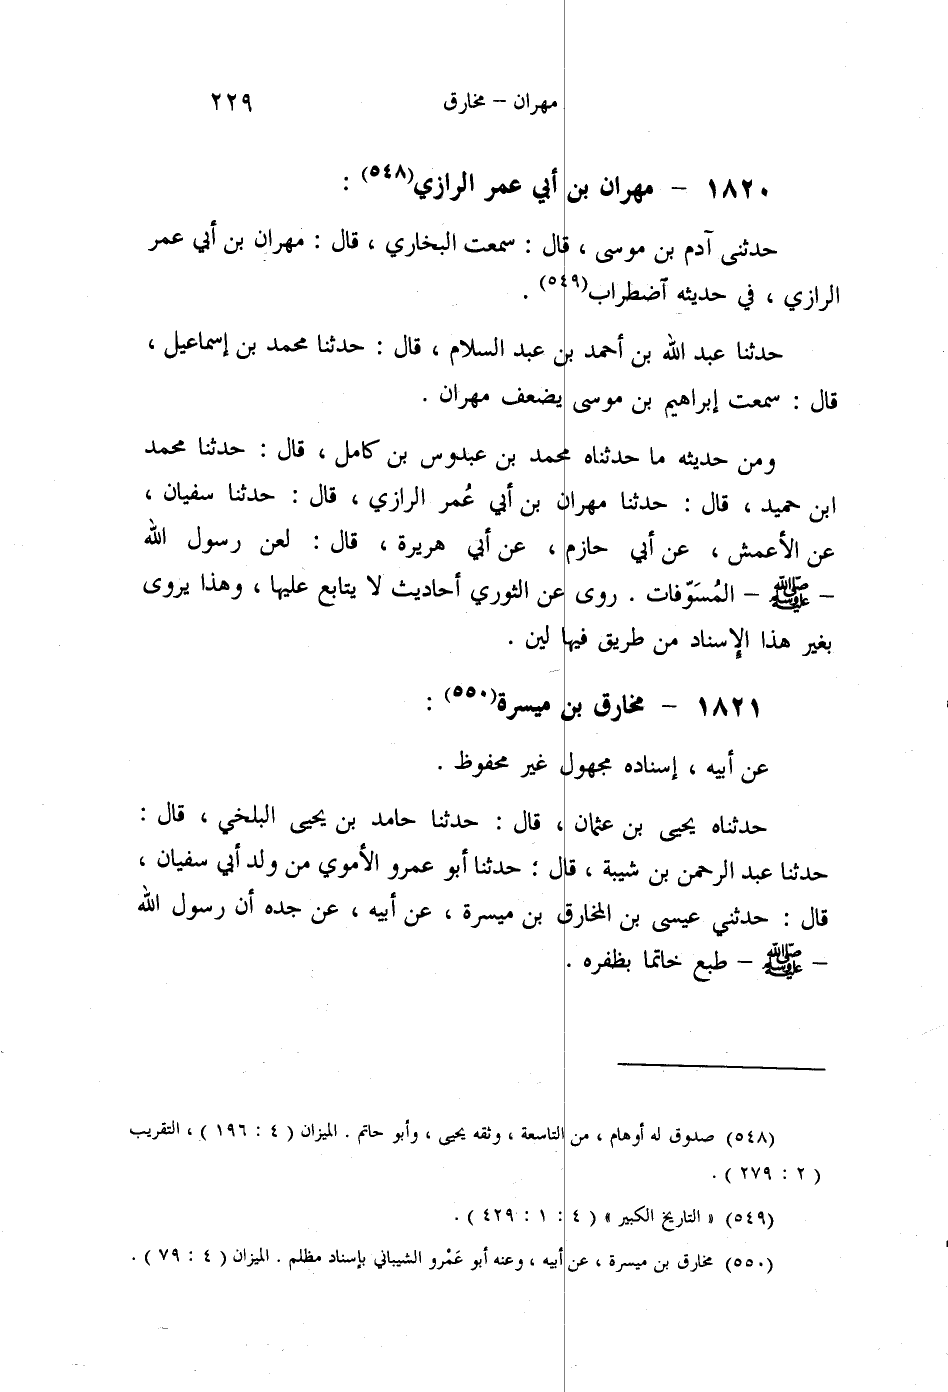 مهران – مخارق ٢٢٩
١٨٢٠ – مهران بن أبي عمر الرازي(٥٤٨) :
حدثنى آدم بن موسى ، قال : سمعت البخاري ، قال : مهران بن أبي عمر
الرازي ، في حديثه آضطراب(٥٤٩) .
حدثنا عبد الله بن أحمد بن عبد السلام ، قال : حدثنا محمد بن إسماعيل ،
قال : سمعت إبراهيم بن موسى يضعف مهران .
ومن حديثه ما حدثناه محمد بن عبدوس بن كامل ، قال : حدثنا محمد
ابن حميد ، قال : حدثنا مهران بن أبي عُمر الرازي ، قال : حدثنا سفيان ،
عن الأعمش ، عن أبي حازم ، عن أبي هريرة ، قال : لعن رسول الله
– ﷺ – المُسَوِّفات . روى عن الثوري أحاديث لا يتابع عليها ، وهذا يروى
بغير هذا الإسناد من طريق فيها لين .
١٨٢١ – مخارق بن ميسرة(٥٥٠) :
عن أبيه ، إسناده مجهول غير محفوظ .
حدثناه يحيى بن عثمان ، قال : حدثنا حامد بن يحيى البلخي ، قال :
حدثنا عبد الرحمن بن شيبة ، قال : حدثنا أبو عمرو الأموي من ولد أبي سفيان ،
قال : حدثني عيسى بن المخارق بن ميسرة ، عن أبيه ، عن جده أن رسول الله
– ﷺ – طبع خاتما بظفره .
(٥٤٨) صدوق له أوهام ، من التاسعة ، وثقه يحيى ، وأبو حاتم . الميزان ( ٤ : ١٩٦ ) ، التقريب
( ٢ : ٢٧٩ ) .
(٥٤٩) « التاريخ الكبير » ( ٤ : ١ : ٤٢٩ ) .
(٥٥٠) مخارق بن ميسرة ، عن أبيه ، وعنه أبو عَمْرو الشيباني بإسناد مظلم . الميزان ( ٤ : ٧٩ ) .